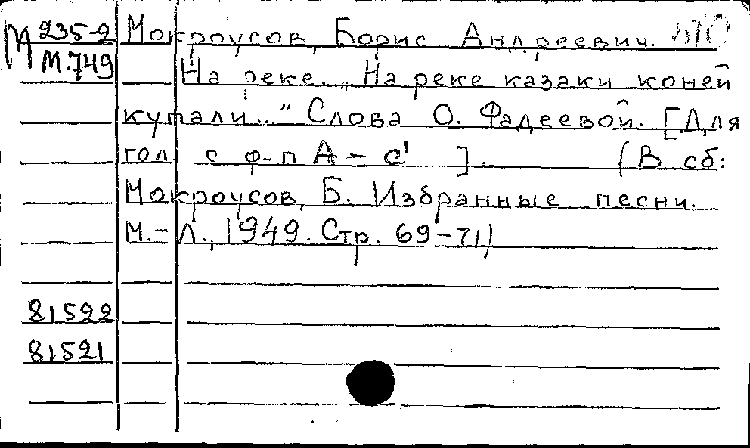 М 235-2
М.749
Мокроусов, Борис Андреевич.
На реке. „На реке казаки коней
купали..." Слова О. Фадеевой. [Для
гол с ф-п А – с¹ ]. (В сб:
Мокроусов, Б. Избранные песни.
М.-Л., 1949. Стр. 69-71)
81522
81521